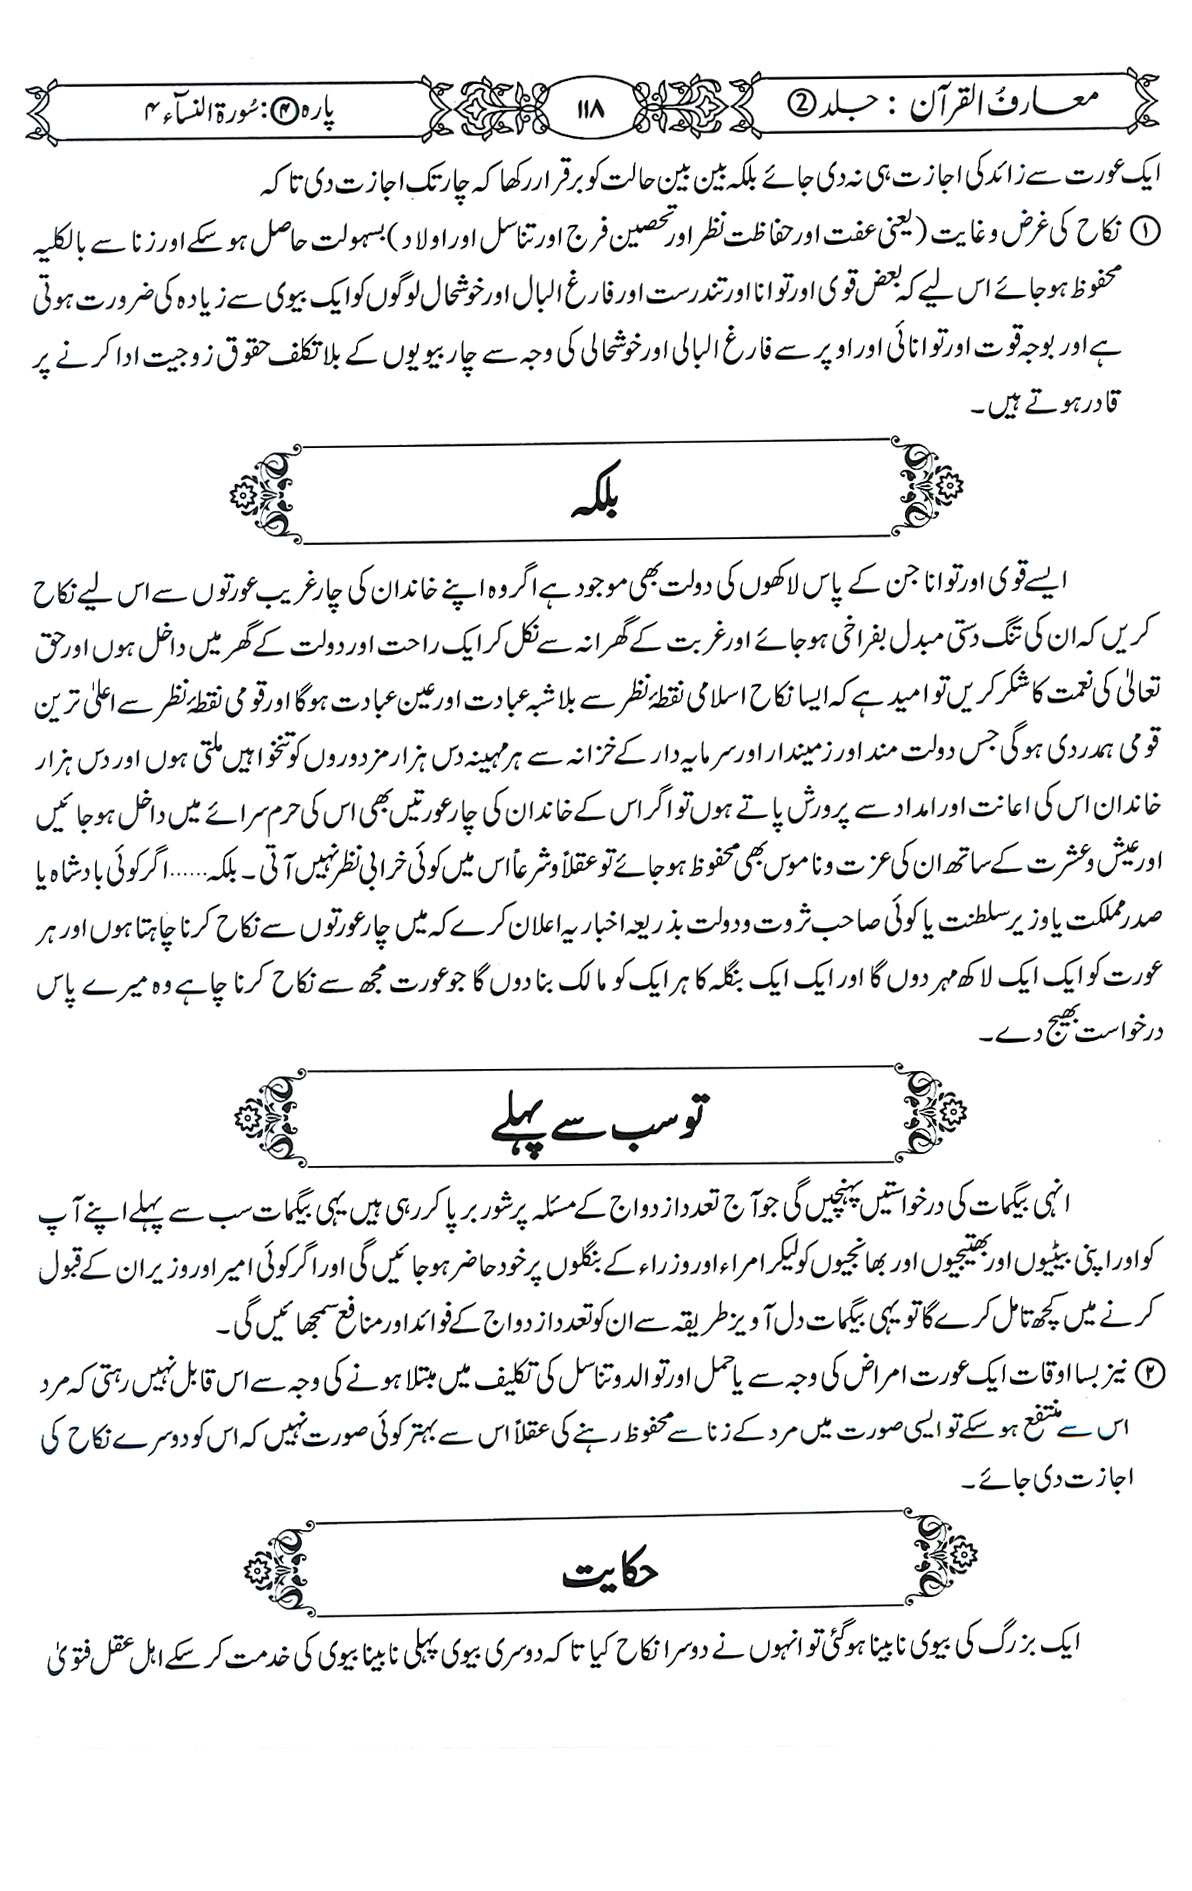 معارفُ القرآن : جلد ②
۱۱۸
پارہ ④: سُورۃ النسآء ۴
ایک عورت سے زائد کی اجازت ہی نہ دی جائے بلکہ بین بین حالت کو برقرار رکھا کہ چار تک اجازت دی تاکہ
① نکاح کی غرض و غایت (یعنی عفت اور حفاظت نظر اور تحصین فرج اور تناسل اور اولاد) بسہولت حاصل ہو سکے اور زنا سے بالکلیہ
محفوظ ہو جائے اس لیے کہ بعض قوی اور توانا اور تندرست اور فارغ البال اور خوشحال لوگوں کو ایک بیوی سے زیادہ کی ضرورت ہوتی
ہے اور بوجہ قوت اور توانائی اور اوپر سے فارغ البالی اور خوشحالی کی وجہ سے چار بیویوں کے بلا تکلف حقوق زوجیت ادا کرنے پر
قادر ہوتے ہیں۔
بلکہ
ایسے قوی اور توانا جن کے پاس لاکھوں کی دولت بھی موجود ہے اگر وہ اپنے خاندان کی چار غریب عورتوں سے اس لیے نکاح
کریں کہ ان کی تنگ دستی مبدل بفراخی ہو جائے اور غربت کے گھرانہ سے نکل کر ایک راحت اور دولت کے گھر میں داخل ہوں اور حق
تعالیٰ کی نعمت کا شکر کریں تو امید ہے کہ ایسا نکاح اسلامی نقطۂ نظر سے بلا شبہ عبادت اور عین عبادت ہوگا اور قومی نقطۂ نظر سے اعلیٰ ترین
قومی ہمدردی ہوگی جس دولت مند اور زمیندار اور سرمایہ دار کے خزانہ سے ہر مہینہ دس ہزار مزدوروں کو تنخواہیں ملتی ہوں اور دس ہزار
خاندان اس کی اعانت اور امداد سے پرورش پاتے ہوں تو اگر اس کے خاندان کی چار عورتیں بھی اس کی حرم سرائے میں داخل ہو جائیں
اور عیش و عشرت کے ساتھ ان کی عزت و ناموس بھی محفوظ ہو جائے تو عقلاً و شرعاً اس میں کوئی خرابی نظر نہیں آتی۔ بلکہ......اگر کوئی بادشاہ یا
صدر مملکت یا وزیر سلطنت یا کوئی صاحب ثروت و دولت بذریعہ اخبار یہ اعلان کرے کہ میں چار عورتوں سے نکاح کرنا چاہتا ہوں اور ہر
عورت کو ایک ایک لاکھ مہر دوں گا اور ایک ایک بنگلہ کا ہر ایک کو مالک بنا دوں گا جو عورت مجھ سے نکاح کرنا چاہے وہ میرے پاس
درخواست بھیج دے۔
تو سب سے پہلے
انہی بیگمات کی درخواستیں پہنچیں گی جو آج تعدد ازدواج کے مسئلہ پر شور برپا کر رہی ہیں یہی بیگمات سب سے پہلے اپنے آپ
کو اور اپنی بیٹیوں اور بھتیجیوں اور بھانجیوں کو لیکر امراء اور وزراء کے بنگلوں پر خود حاضر ہو جائیں گی اور اگر کوئی امیر اور وزیر ان کے قبول
کرنے میں کچھ تامل کرے گا تو یہی بیگمات دل آویز طریقہ سے ان کو تعدد ازدواج کے فوائد اور منافع سمجھائیں گی۔
② نیز بسا اوقات ایک عورت امراض کی وجہ سے یا حمل اور توالد و تناسل کی تکلیف میں مبتلا ہونے کی وجہ سے اس قابل نہیں رہتی کہ مرد
اس سے منتفع ہو سکے تو ایسی صورت میں مرد کے زنا سے محفوظ رہنے کی عقلاً اس سے بہتر کوئی صورت نہیں کہ اس کو دوسرے نکاح کی
اجازت دی جائے۔
حکایت
ایک بزرگ کی بیوی نابینا ہوگئی تو انہوں نے دوسرا نکاح کیا تاکہ دوسری بیوی پہلی نابینا بیوی کی خدمت کر سکے اہل عقل فتویٰ